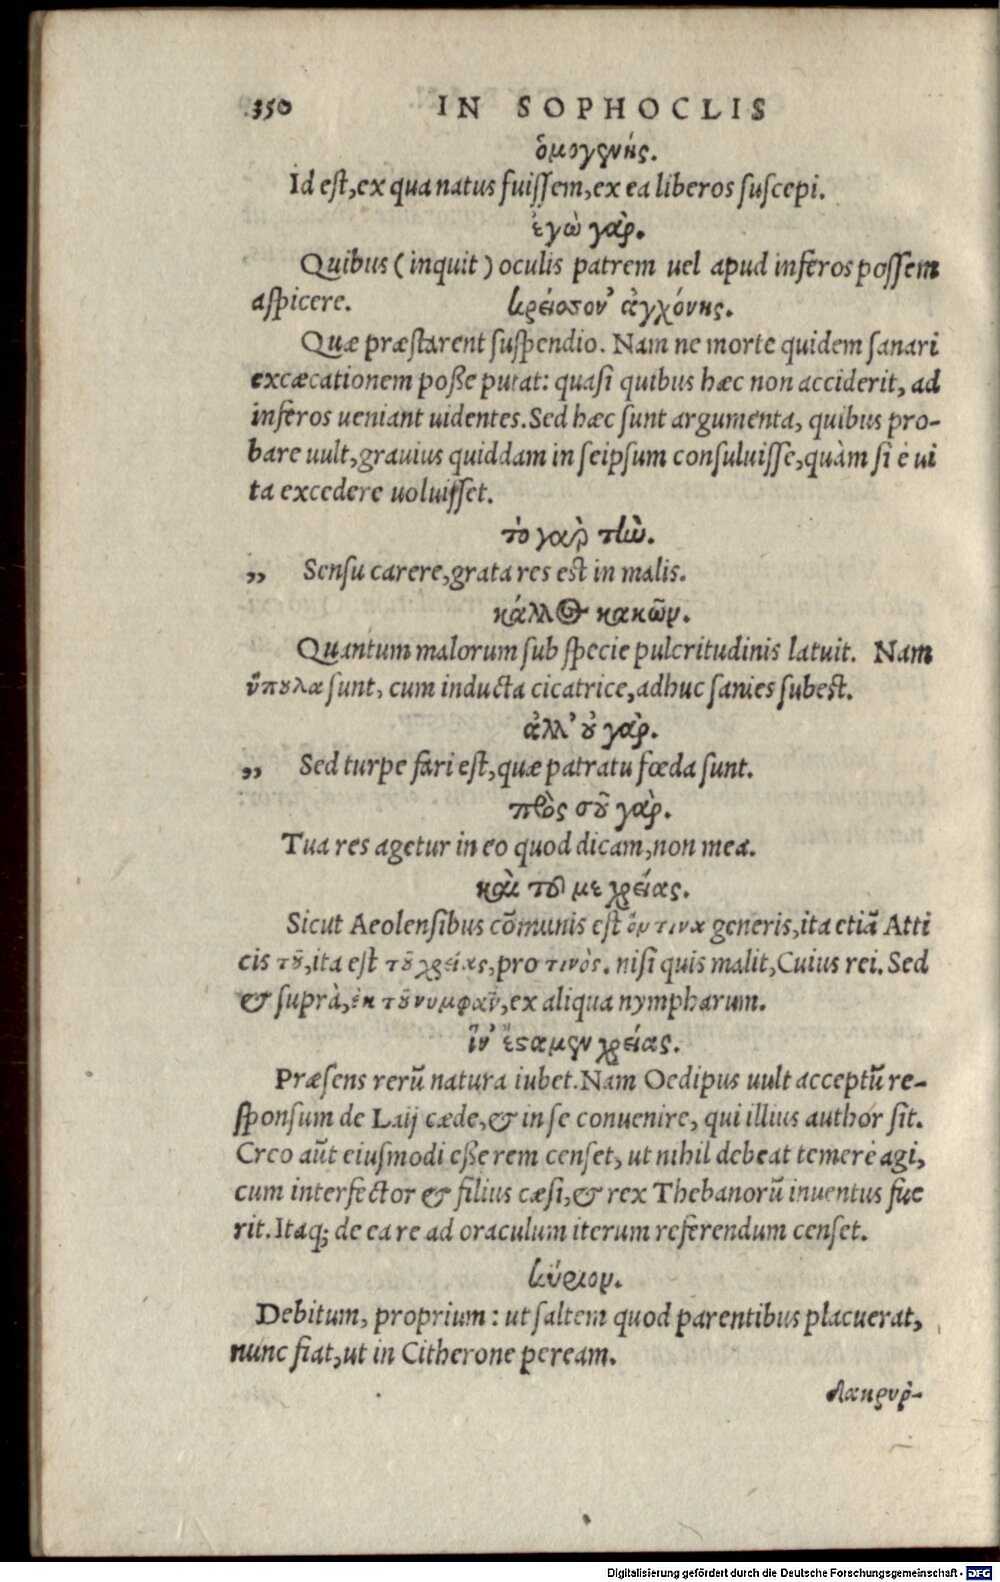 350 IN SOPHOCLIS
ὁμογενής.
Id est, ex qua natus fuissem, ex ea liberos suscepi.
ἐγὼ γὰρ.
Quibus (inquit) oculis patrem uel apud inferos possem
aspicere. κρείσσον' ἀγχόνης.
Quæ præstarent suspendio. Nam ne morte quidem sanari
excæcationem posse putat: quasi quibus hæc non acciderit, ad
inferos ueniant uidentes. Sed hæc sunt argumenta, quibus pro-
bare uult, grauius quiddam in seipsum consuluisse, quàm si è ui
ta excedere uoluisset.
τὸ γαρ τὼ.
„ Sensu carere, grata res est in malis.
κάλλος κακῶν.
Quantum malorum sub specie pulcritudinis latuit. Nam
ὕπουλα sunt, cum inducta cicatrice, adhuc sanies subest.
ἀλλ' οὐ γὰρ.
„ Sed turpe fari est, quæ patratu fœda sunt.
πρὸς σοῦ γὰρ.
Tua res agetur in eo quod dicam, non mea.
καὶ τοῦ με χρείας.
Sicut Aeolensibus cōmunis est ὅν τινα generis, ita etiā Atti
cis τοῦ, ita est τοῦ χρείας, pro τινὸς. nisi quis malit, Cuius rei. Sed
& suprà, ἐκ τοῦ νυμφαῦ, ex aliqua nympharum.
ἵν' ἕσταμεν χρείας.
Præsens rerū natura iubet. Nam Oedipus uult acceptū re-
sponsum de Laij cæde, & in se conuenire, qui illius author sit.
Creo aūt eiusmodi esse rem censet, ut nihil debeat temerè agi,
cum interfector & filius cæsi, & rex Thebanorū inuentus fue
rit. Itaq; de ea re ad oraculum iterum referendum censet.
κύριον.
Debitum, proprium: ut saltem quod parentibus placuerat,
nunc fiat, ut in Citherone peream.
δακρυρ-
Digitalisierung gefördert durch die Deutsche Forschungsgemeinschaft - DFG